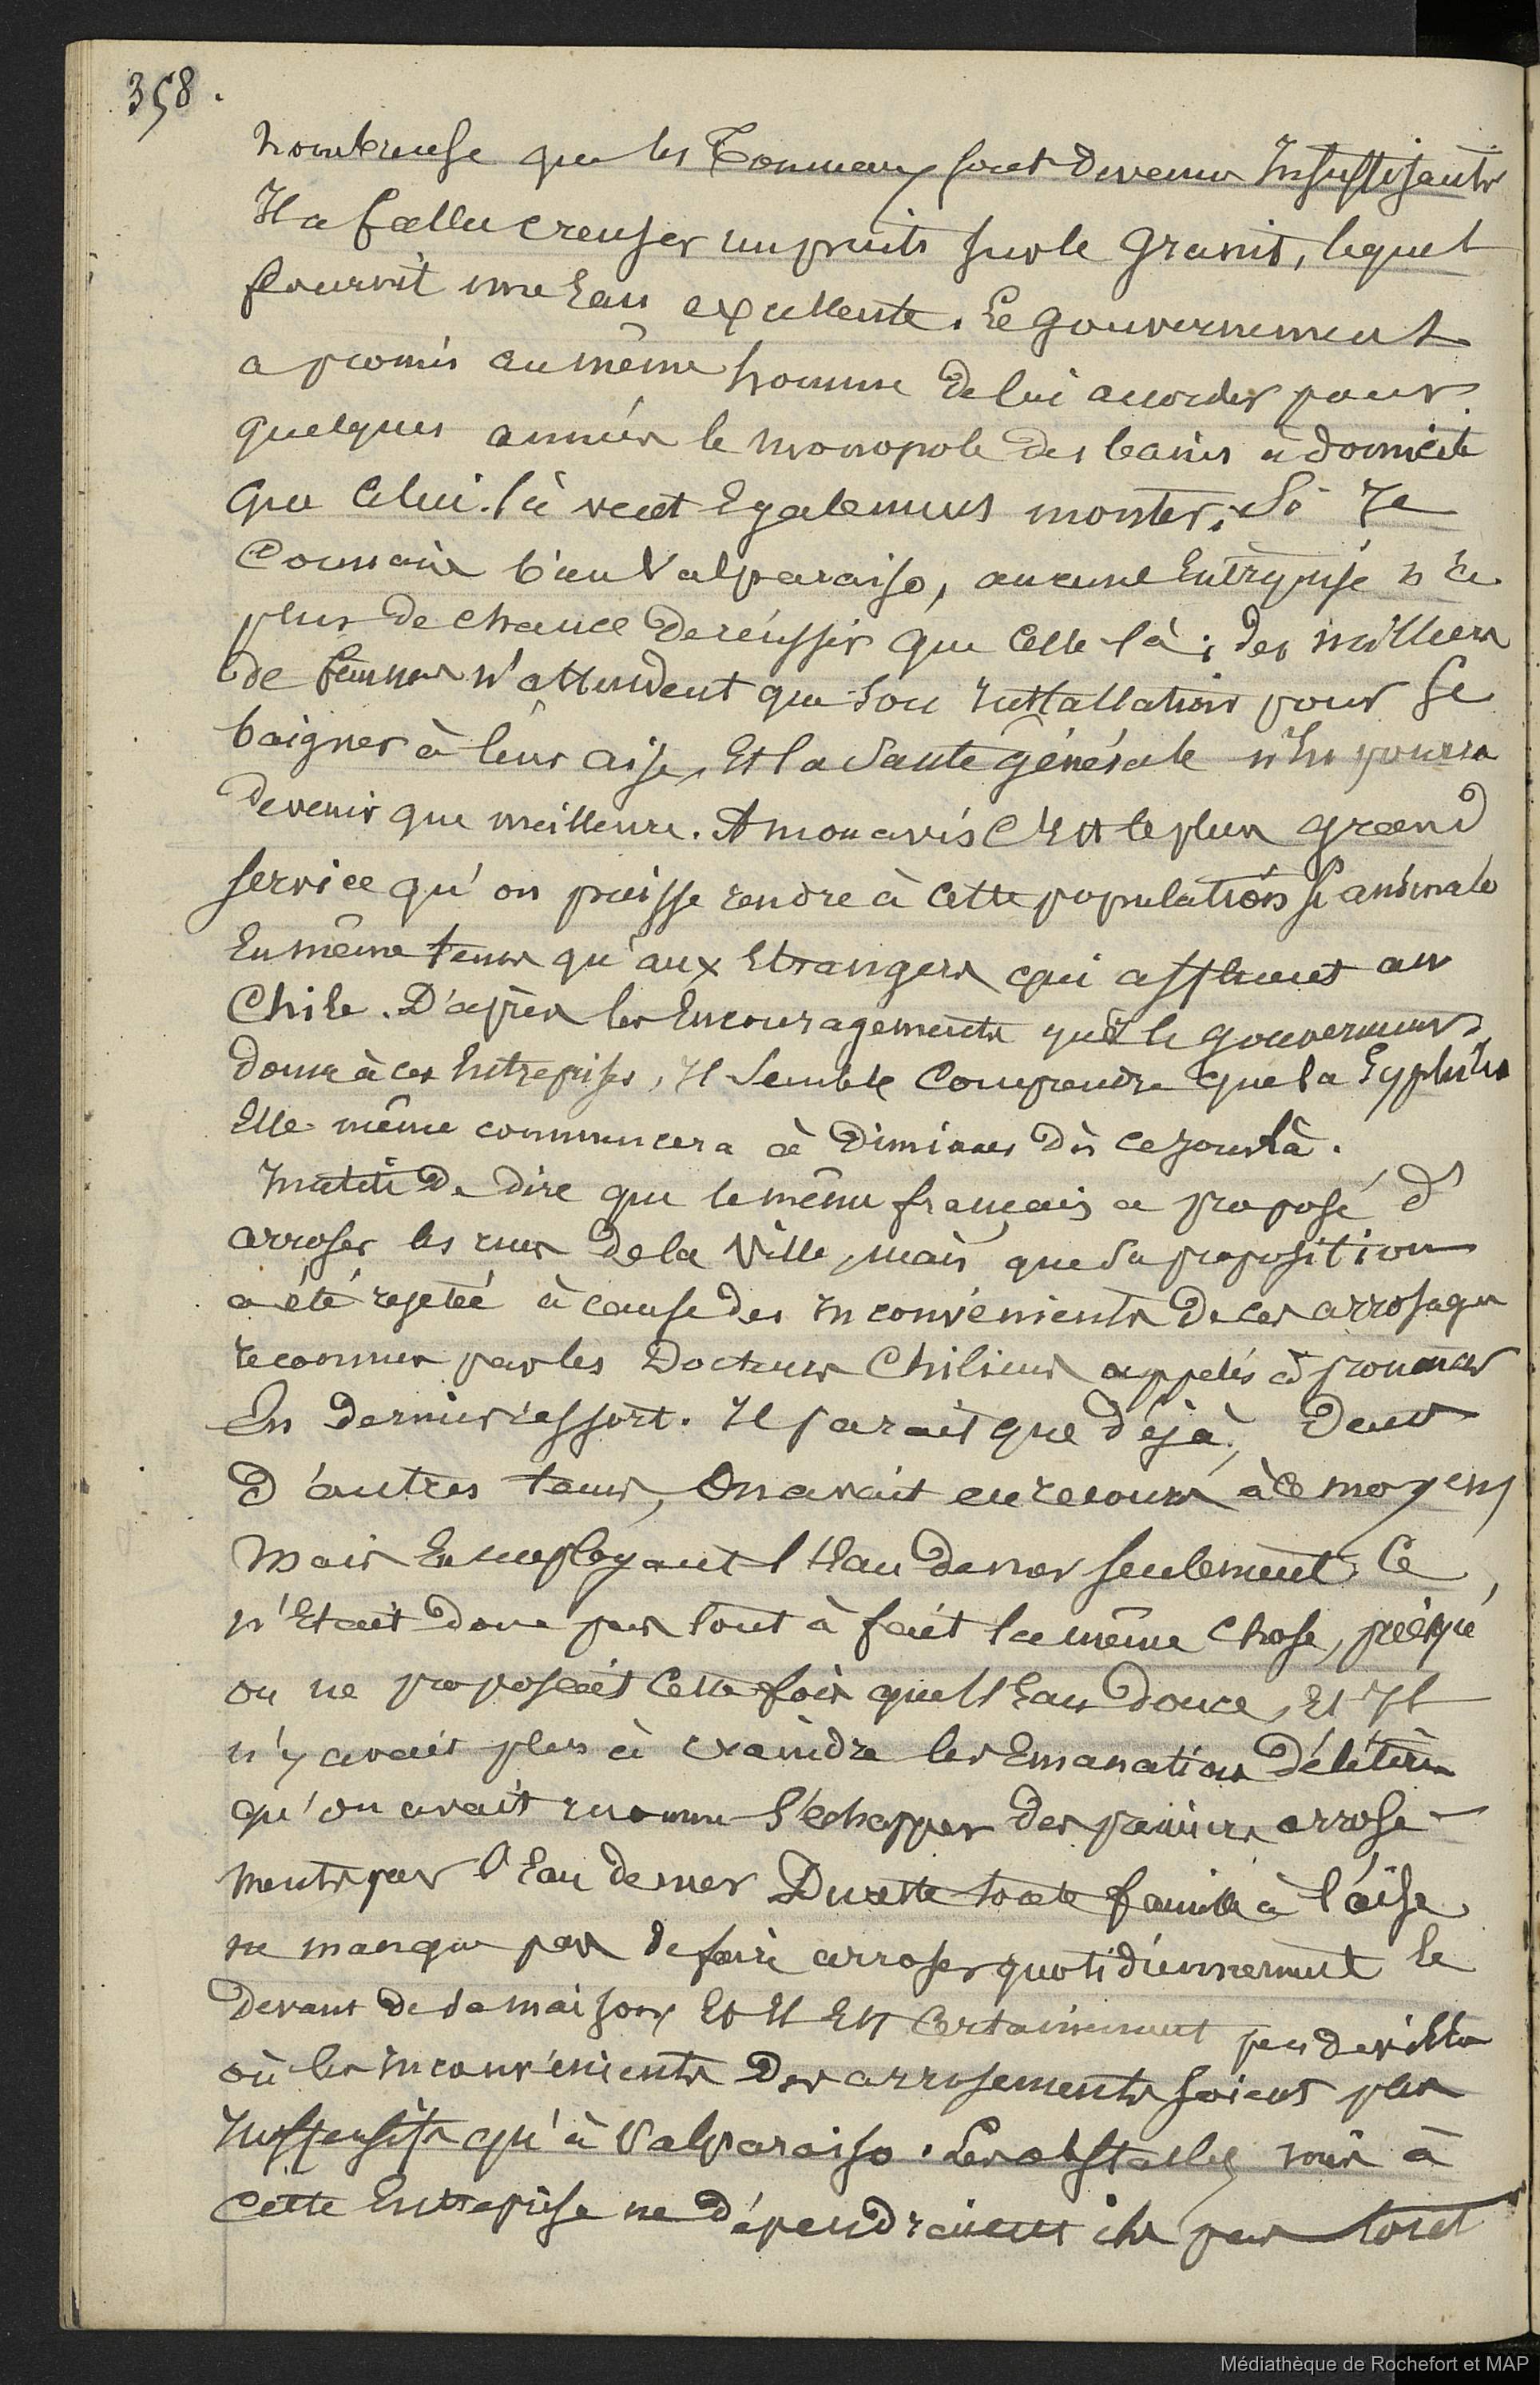 358.
nombreuse que les Tonneaux sont devenus Insuffisants
Il a fallu creuser un puits sur le Granit, lequel
fournit une Eau excellente. Le Gouvernement
a promis au même homme de lui accorder pour
quelques années le monopole des bains à domicile
que celui-là veut Egalement monter. Si Je
Connais bien Valparaiso, aucune Entreprise n'a
plus de chance de réussir que celle là ; des milliers
de femmes n'attendent que son Installation pour se
baigner à leur aise, Et la Santé générale n'En pourra
devenir que meilleure. A mon avis C'Est le plus grand
service qu'on puisse rendre à cette population si
En même tems qu'aux Etrangers qui affluent au
Chili. D'après les Encouragements que le gouvernement
donne à ces Entreprises, Il Semble Comprendre que la Syphilis
Elle même commencera à Diminuer Dès ce jour là.
Inutile De dire que le même français a proposé d'
arroser les rues de la Ville, mais que Sa proposition
a été rejetée à cause des Inconvénients de ces arrosages
reconnus par les Docteurs Chiliens appelés à prononcer
En dernier ressort. Il parait que déjà, Dans
D'autres tems, On avait eu recours à ce moyen,
Mais En employant l'Eau de mer seulement. Ce
n'Etait donc pas tout à fait la même Chose, puisqu'
on ne proposait Cette fois que l'Eau Douce, Et Il
n'y avait plus à craindre les Emanations Délétères
qu'on avait reconnu S'échapper des premiers arrose-
ments par l'Eau de mer Du reste toute famille à l'aise
ne manque pas de faire arroser quotidiennement le
devant de sa maison, Et Il Est Certainement peu de villes
où les Inconvénients Des arrosements soient plus
Inoffensifs qu'à Valparaiso. Les obstacles mis à
cette Entreprise ne dépendraient ils pas tout
Médiathèque de Rochefort et MAP